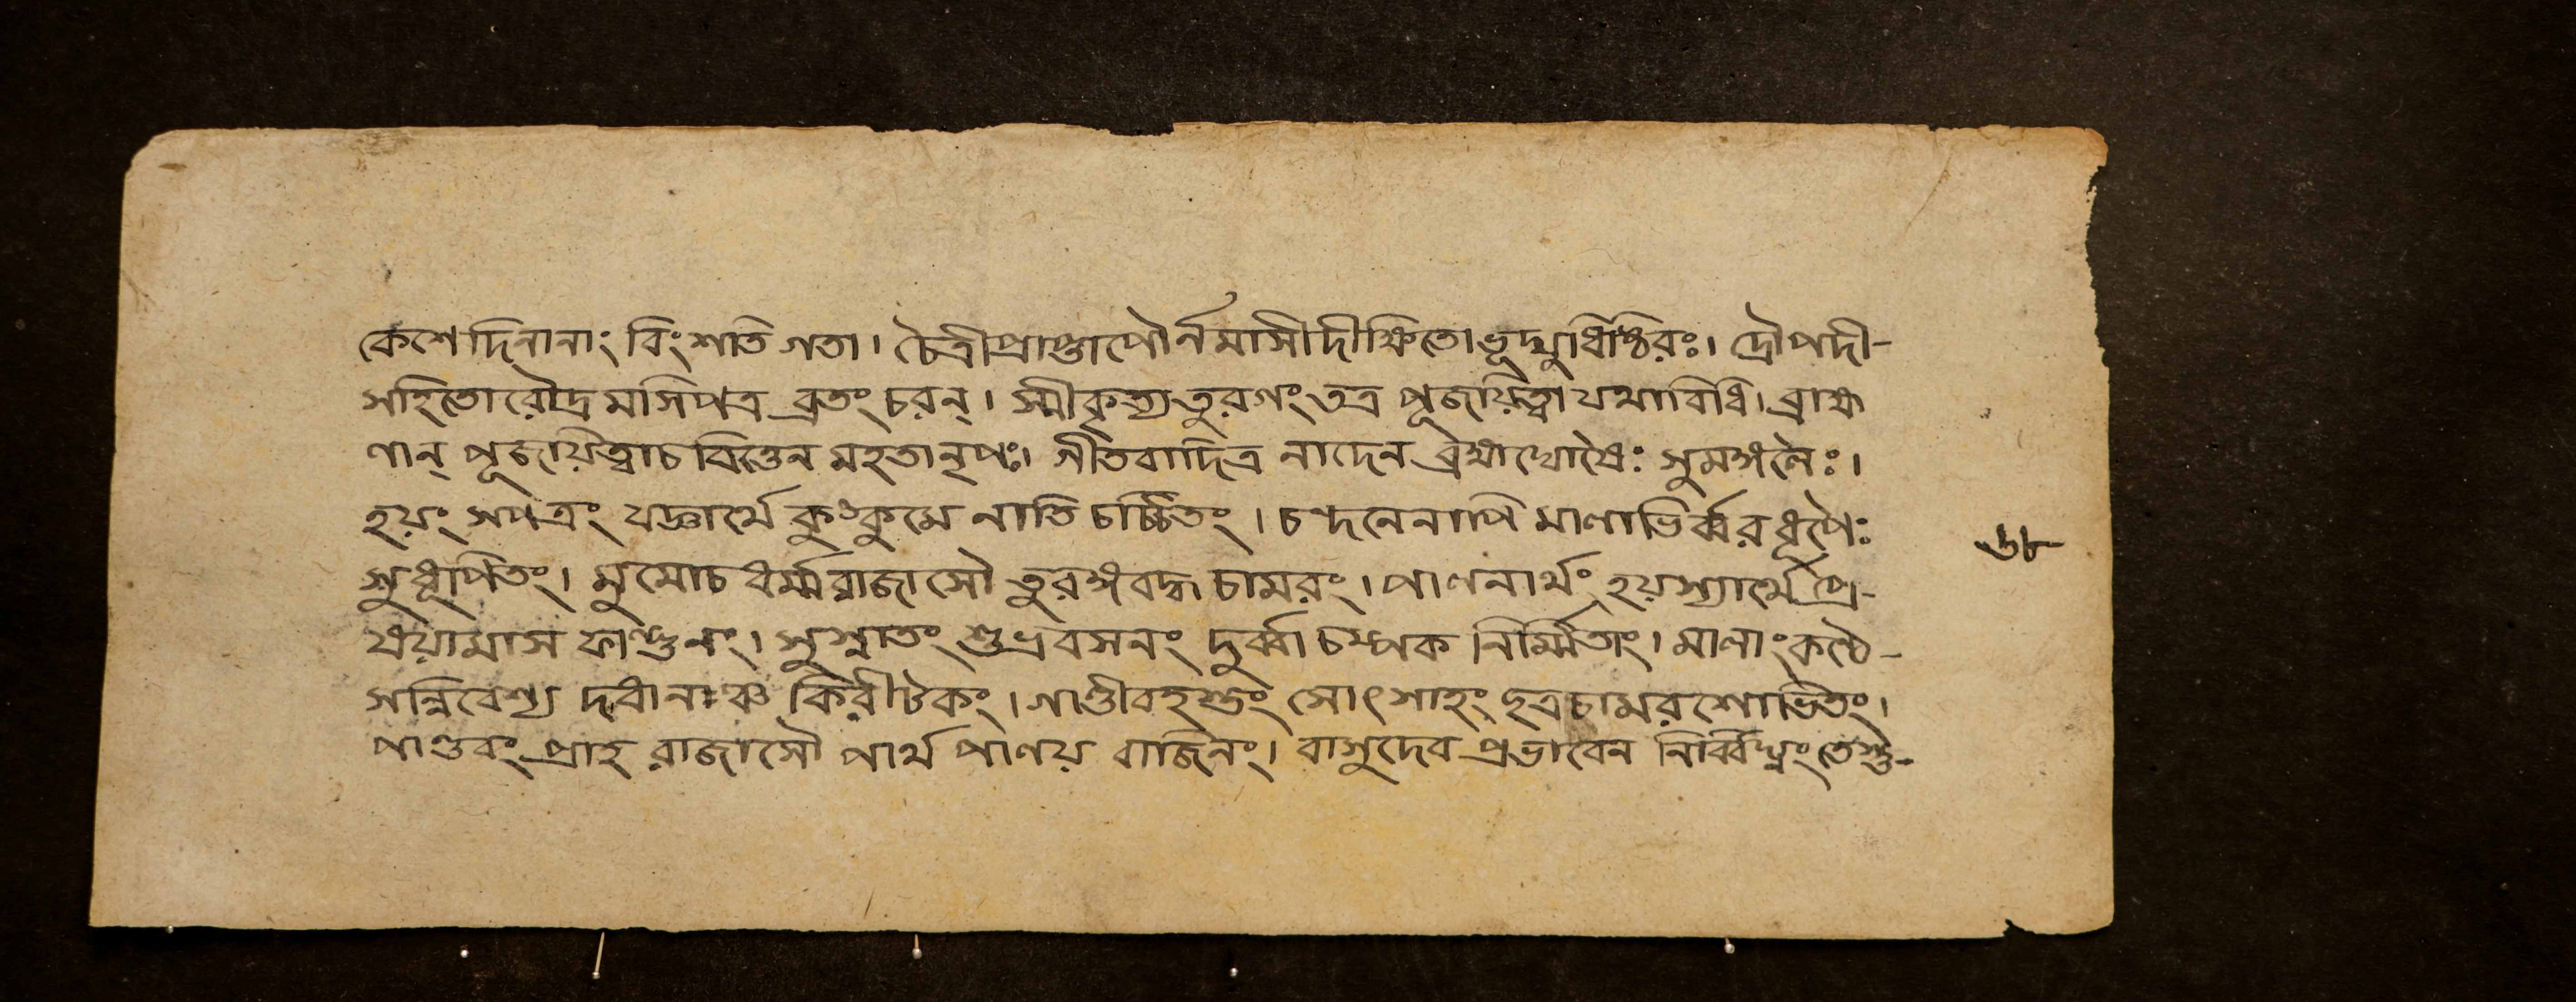 কেশে দিনানাং বিংশতি গতা। চৈত্রীপ্রাপ্তাপৌর্নমাসীদীক্ষিতোভূদ্যুধিষ্ঠিরঃ। দ্রৌপদী-
সহিতোরৌদ্রমসিপত্র ব্রতং চরন্। স্মীকৃত্যতুরগং তত্র পূজয়িত্বা যথাবিধি। ব্রাহ্ম
ণান্ পূজয়িত্বাচ বিত্তেন মহতানৃপঃ। গীতবাদিত্র নাদেন ব্রহ্মঘোষৈঃ সুমঙ্গলৈঃ।
হয়ং সপত্রং যজ্ঞার্থে কুংকুমে নাতি চর্চ্চিতং। চন্দনেনাপি মালাভির্ব্বরধূপৈঃ
সুধূপিতং। মুমোচ ধর্ম্মরাজাসৌ তুরঙ্গবদ্ধ চামরং। পালনার্থং হয়স্যার্থে প্রে-
ষয়ামাস ফাল্গুনং। সুস্নাতং শুভ্রবসনং দুর্ব্বা চম্পক নির্ম্মিতাং। মালাং কণ্ঠে-
সন্নিবেশ্য দধানঞ্চ কিরীটকং। গাণ্ডীবহস্তং সোৎসাহং ছত্রচামরশোভিতং।
পাণ্ডবং প্রাহ রাজাসৌ পার্থ পালয় বাজিনং। বাসুদেব প্রভাবেন নির্ব্বিঘ্নং তেস্তু-
৬৮